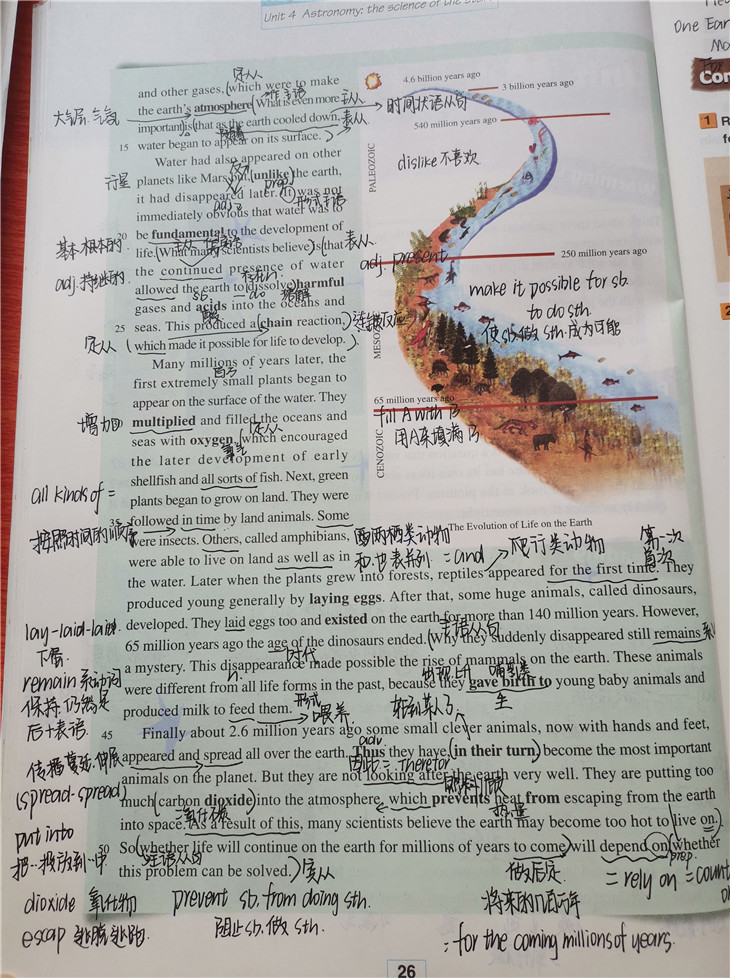 Unit 4 Astronomy: the science of the
and other gases, which were to make
the earth's atmosphere. What is even more
important is that as the earth cooled down,
15 water began to appear on its surface.
Water had also appeared on other
planets like Mars but, unlike the earth,
it had disappeared later. It was not
immediately obvious that water was to
20 be fundamental to the development of
life. What many scientists believe is that
the continued presence of water
allowed the earth to dissolve harmful
gases and acids into the oceans and
25 seas. This produced a chain reaction,
which made it possible for life to develop.
Many millions of years later, the
first extremely small plants began to
appear on the surface of the water. They
multiplied and filled the oceans and
seas with oxygen, which encouraged
the later development of early
shellfish and all sorts of fish. Next, green
plants began to grow on land. They were
35 followed in time by land animals. Some
were insects. Others, called amphibians,
were able to live on land as well as in
the water. Later when the plants grew into forests, reptiles appeared for the first time. They
produced young generally by laying eggs. After that, some huge animals, called dinosaurs,
developed. They laid eggs too and existed on the earth for more than 140 million years. However,
65 million years ago the age of the dinosaurs ended. Why they suddenly disappeared still remains
a mystery. This disappearance made possible the rise of mammals on the earth. These animals
were different from all life forms in the past, because they gave birth to young baby animals and
produced milk to feed them.
45 Finally about 2.6 million years ago some small clever animals, now with hands and feet,
appeared and spread all over the earth. Thus they have, in their turn, become the most important
animals on the planet. But they are not looking after the earth very well. They are putting too
much carbon dioxide into the atmosphere, which prevents heat from escaping from the earth
into space. As a result of this, many scientists believe the earth may become too hot to live on.
50 So whether life will continue on the earth for millions of years to come will depend on whether
this problem can be solved.
4.6 billion years ago
3 billion years ago
540 million years ago
PALEOZOIC
250 million years ago
MESO
65 million years ago
CENOZOIC
The Evolution of Life on the Earth
26
定从
主语
大气层,气氛
主从
表从
时间状语从句
dislike 不喜欢
行星
prep
形式主语
基本根本的
主从
表从
adj. 持继的
adj. present
make it possible for sb.
to do sth.
使sb.做sth.成为可能
sb.
do
溶解
连锁反应
定从
增加
定从
氧气
fill A with B
用A来填满B
all kinds of =
按照时间的顺序
两栖类动物
和,也表并列 = and
爬行类动物
第一次
首次
lay-laid-laid
下蛋
主语从句
时代
n.
remain 系动词
保持 仍然是
后+表语
形式
喂养
轮到某人了
adv.
因此
传播蔓延,伸展
(spread-spread)
二氧化碳
热量
put into
把…投放到…中
主语从句
宾从
做后定
prep.
= rely on = count
dioxide 氧化物
escap 逃脱逃跑
prevent sb. from doing sth.
阻止sb.做sth.
将来的几百万年
= for the coming millions of years.
One Ear
Con
1 R
2